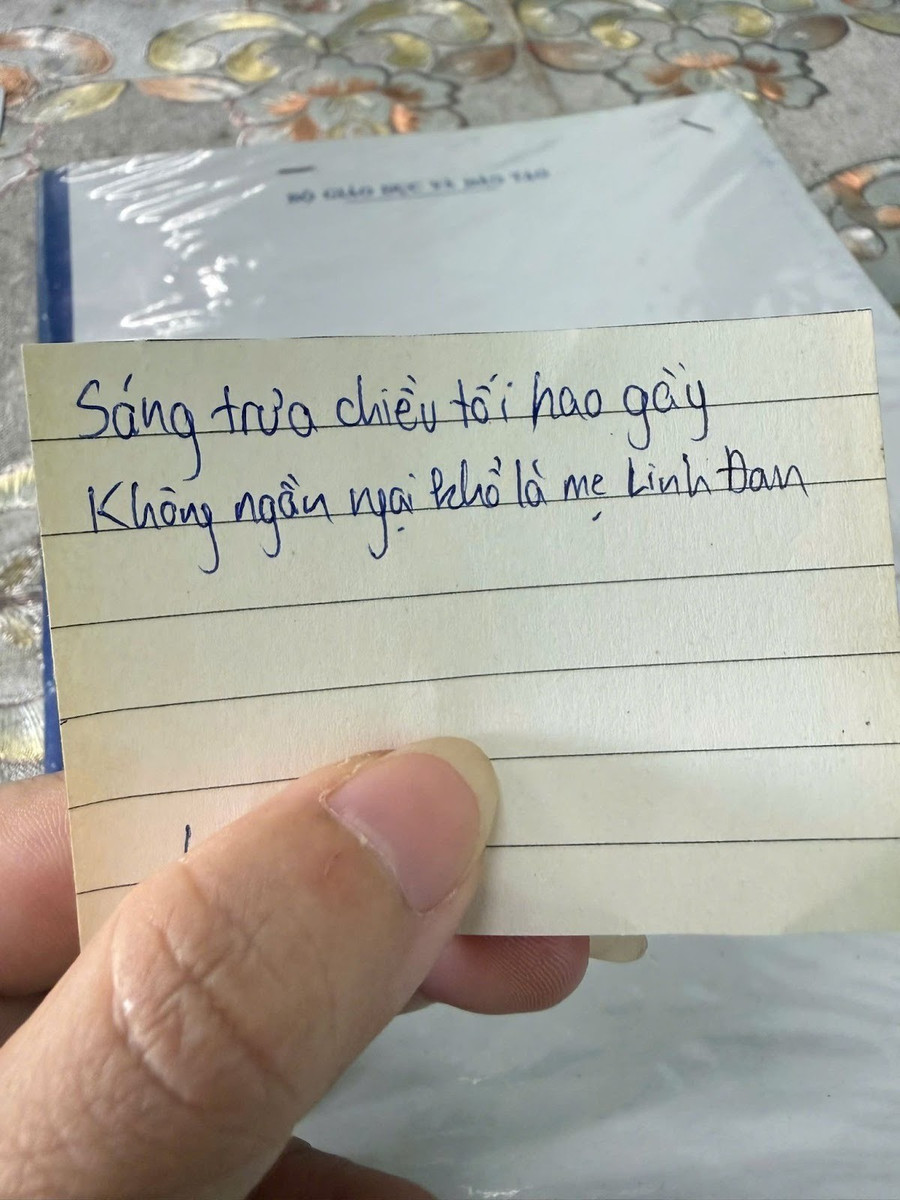 BỘ GIÁO DỤC VÀ ĐÀO TẠO
Sáng trưa chiều tối hao gầy
Không ngần ngại khổ là mẹ Linh Đan